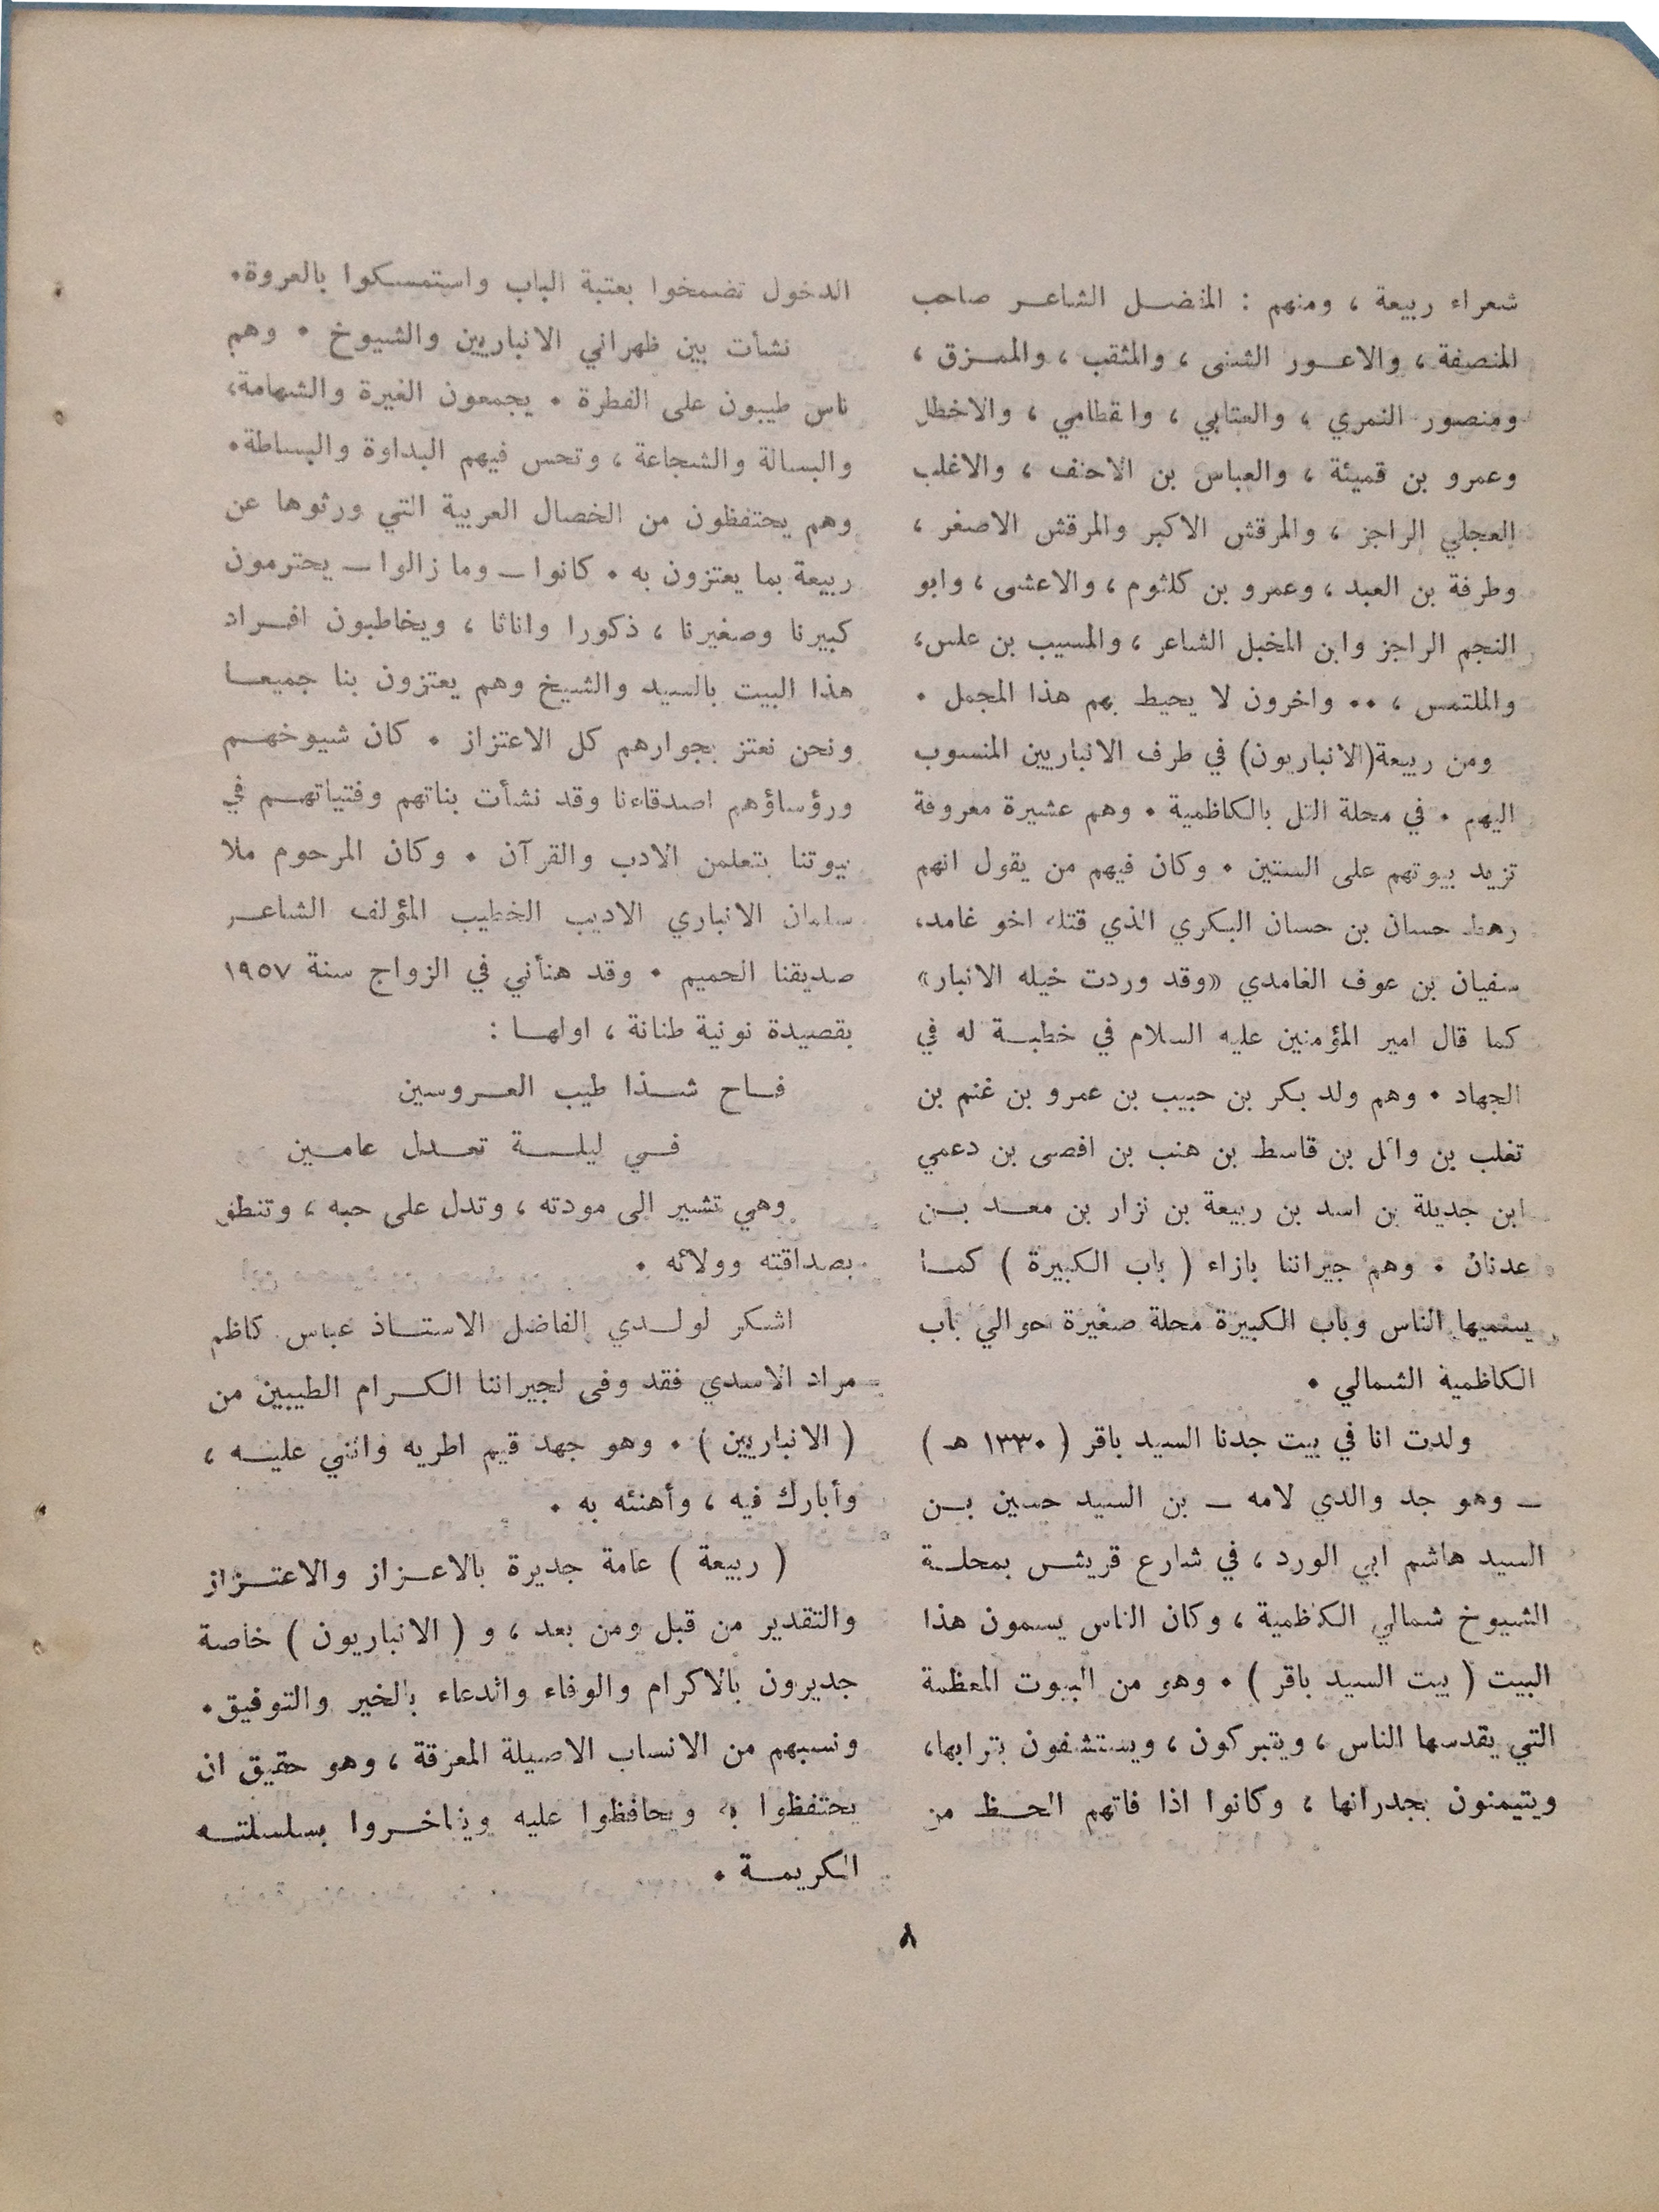 شعراء ربيعة ، ومنهم : المفضل الشاعر صاحب
المنصفة ، والاعور الشنى ، والمثقب ، والممزق ،
ومنصور النمري ، والعتابي ، والقطامي ، والاخطل
وعمرو بن قميئة ، والعباس بن الاحنف ، والاغلب
العجلي الراجز ، والمرقش الاكبر والمرقش الاصغر ،
وطرفة بن العبد ، وعمرو بن كلثوم ، والاعشى ، وابو
النجم الراجز وابن المخبل الشاعر ، والمسيب بن علس،
والملتمس ، ٠٠ واخرون لا يحيط بهم هذا المجمل ٠
ومن ربيعة(الانباريون) في طرف الانباريين المنسوب
اليهم ٠ في محلة التل بالكاظمية ٠ وهم عشيرة معروفة
تزيد بيوتهم على الستين ٠ وكان فيهم من يقول انهم
رهط حسان بن حسان البكري الذي قتله اخو غامد،
سفيان بن عوف الغامدي «وقد وردت خيله الانبار»
كما قال امير المؤمنين عليه السلام في خطبة له في
الجهاد ٠ وهم ولد بكر بن حبيب بن عمرو بن غنم بن
تغلب بن وائل بن قاسط بن هنب بن افصى بن دعمي
ابن جديلة بن اسد بن ربيعة بن نزار بن معد بن
عدنان ٠ وهم جيراننا بازاء ( باب الكبيرة ) كما
يسميها الناس وباب الكبيرة محلة صغيرة حوالي باب
الكاظمية الشمالي ٠
ولدت انا في بيت جدنا السيد باقر ( ١٣٣٠ هـ )
ـ وهو جد والدي لامه ـ بن السيد حسين بن
السيد هاشم ابي الورد ، في شارع قريش بمحلة
الشيوخ شمالي الكاظمية ، وكان الناس يسمون هذا
البيت ( بيت السيد باقر ) ٠ وهو من البيوت المعظمة
التي يقدسها الناس ، ويتبركون ، ويستشفون بترابها،
ويتيمنون بجدرانها ، وكانوا اذا فاتهم الحظ من
الدخول تضمخوا بعتبة الباب واستمسكوا بالعروة٠
نشأت بين ظهراني الانباريين والشيوخ ٠ وهم
ناس طيبون على الفطرة ٠ يجمعون الغيرة والشهامة،
والبسالة والشجاعة ، وتحس فيهم البداوة والبساطة٠
وهم يحتفظون من الخصال العربية التي ورثوها عن
ربيعة بما يعتزون به ٠ كانوا ـ وما زالوا ـ يحترمون
كبيرنا وصغيرنا ، ذكورا واناثا ، ويخاطبون افراد
هذا البيت بالسيد والشيخ وهم يعتزون بنا جميعا
ونحن نعتز بجوارهم كل الاعتزاز ٠ كان شيوخهم
ورؤساؤهم اصدقاءنا وقد نشأت بناتهم وفتياتهم في
بيوتنا يتعلمن الادب والقرآن ٠ وكان المرحوم ملا
سلمان الانباري الاديب الخطيب المؤلف الشاعر
صديقنا الحميم ٠ وقد هنأني في الزواج سنة ١٩٥٧
بقصيدة نونية طنانة ، اولها :
فاح شذا طيب العروسين
في ليلة تعدل عامين
وهي تشير الى مودته ، وتدل على حبه ، وتنطق
بصداقته وولائه ٠
اشكر لولدي الفاضل الاستاذ عباس كاظم
مراد الاسدي فقد وفى لجيراننا الكرام الطيبين من
( الانباريين ) ٠ وهو جهد قيم اطريه واثني عليه ،
وأبارك فيه ، وأهنئه به ٠
( ربيعة ) عامة جديرة بالاعزاز والاعتزاز
والتقدير من قبل ومن بعد ، و ( الانباريون ) خاصة
جديرون بالاكرام والوفاء والدعاء بالخير والتوفيق٠
ونسبهم من الانساب الاصيلة المعرقة ، وهو حقيق ان
يحتفظوا به ويحافظوا عليه ويفاخروا بسلسلته
الكريمة ٠
٨